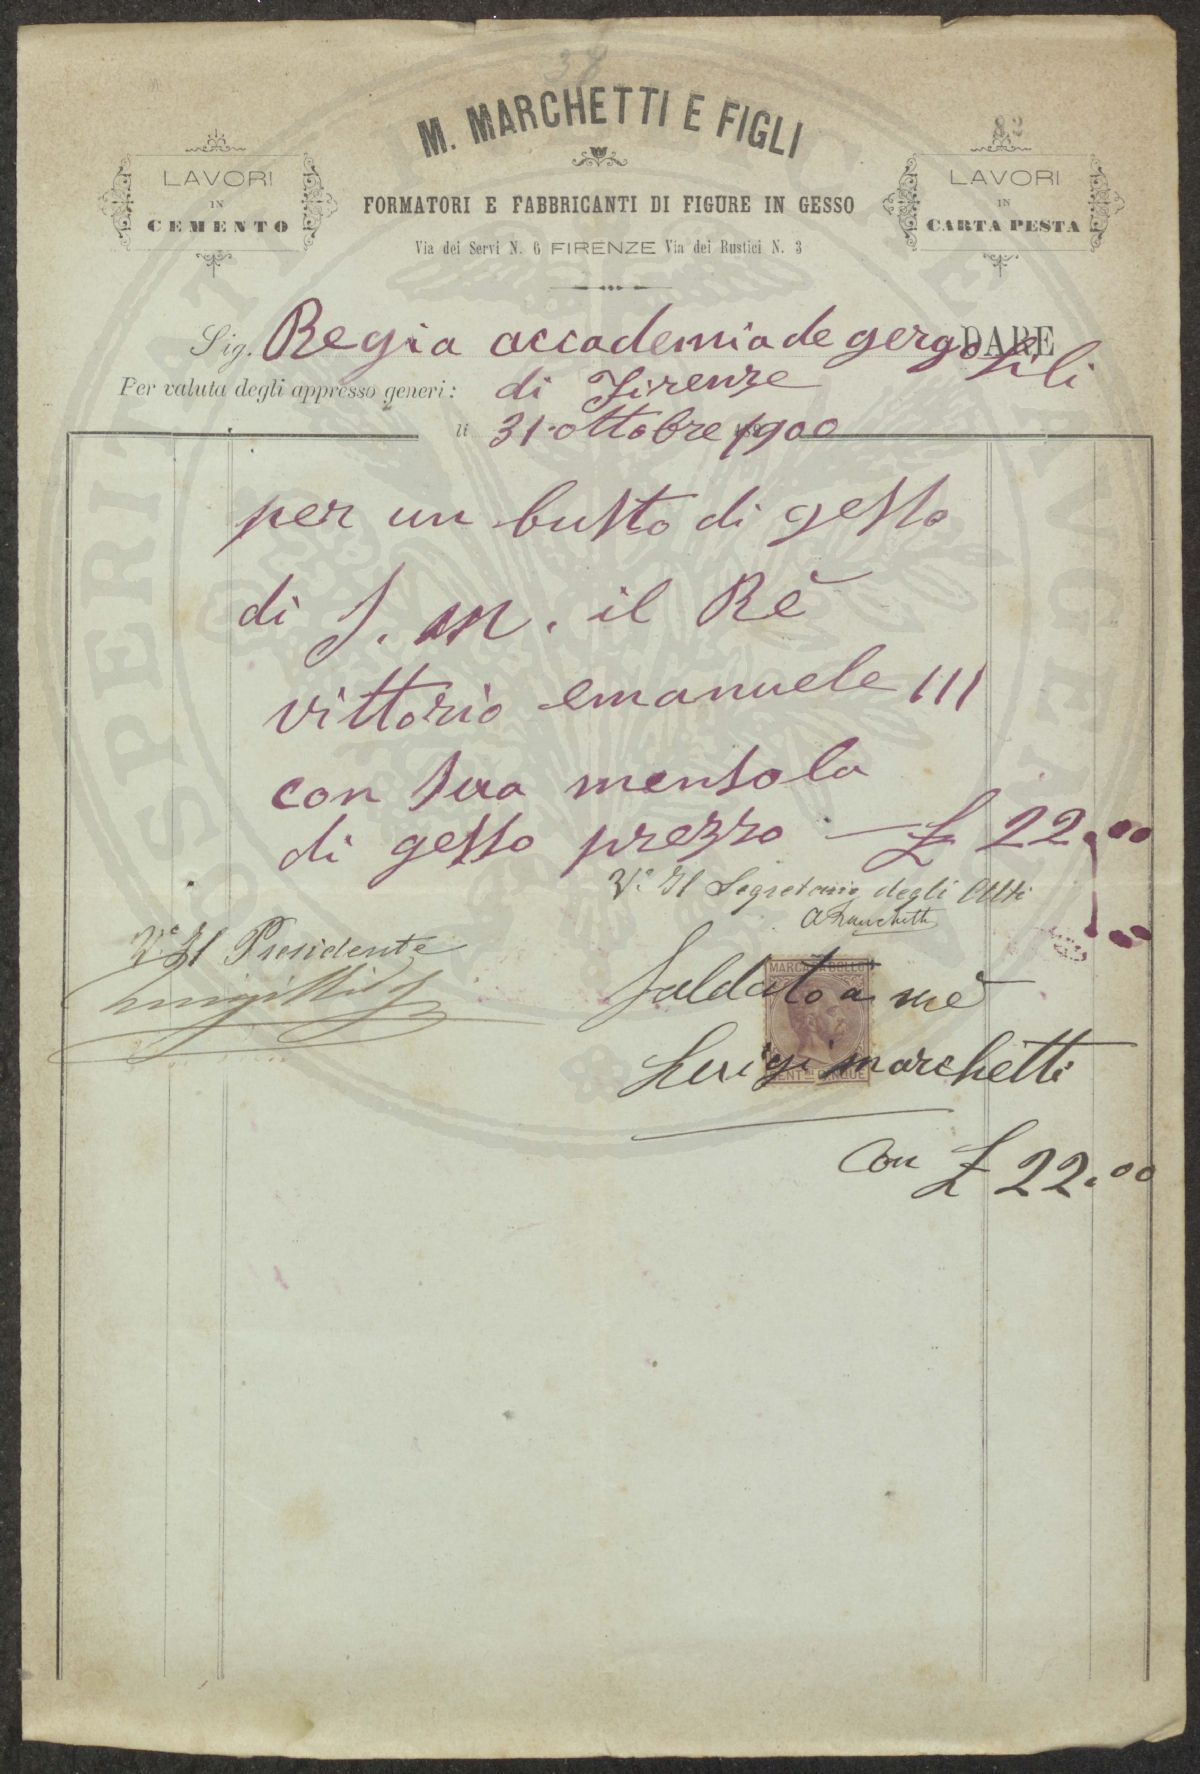 38
M. MARCHETTI E FIGLI
82
LAVORI
IN
CEMENTO
LAVORI
IN
CARTA PESTA
FORMATORI E FABBRICANTI DI FIGURE IN GESSO
Via dei Servi N. 6 FIRENZE Via dei Rustici N. 3
Sig. Regia accademia de gergofili DARE
Per valuta degli appresso generi: di Firenze
li 31 ottobre 1900
per un busto di gesso
di S. M. il Rè
vittorio emanuele III
con sua mensola
di gesso prezzo — £ 22.00
V.° Il Segretario degli Atti
V.° Il Presidente
MARCA DA BOLLO
Saldato a mè
Luigi marchetti
CENT.MI CINQUE
Con £ 22.00